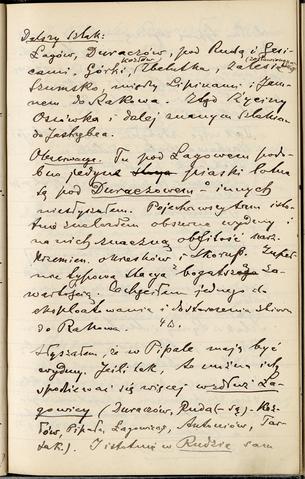 Dalszy szlak:
Łagów, Duraczów, pod Rudą i Gęsi-
cami, Górki, Kozłów, Zbelutka, Zalesie
Szumsko, między Lipinami i Jam-
nem do Rakowa. Stąd Życiny
Osówka i dalej znanym szlakiem
do Jastrzębca.
Obserwacje. Tu pod Łagowem podo-
bno jedyne piaski lotne
są pod Duraczowem o innych
nie słyszałem. Pojechawszy tam isto-
tnie znalazłem obszerne wydmy i
na nich znaczną obfitość narz.
krzemien. okrzesków i skorup. Zupeł-
nie typowa stacya z bogatszą za-
wartością. Zachęciłem jednego do
eksploatowania i dostarczenia zbioru
do Rakowa.
Słyszałem, że w Pipale mają być
wydmy. Jeśli tak, to można ich
spodziewać się więcej wzdłuż Ła-
gowicy (Duraczów, Ruda (- są) - Koz-
łów, Pipała, Łagowica, Antoniów, Tar-
tak). I istotnie w Rudzie sam